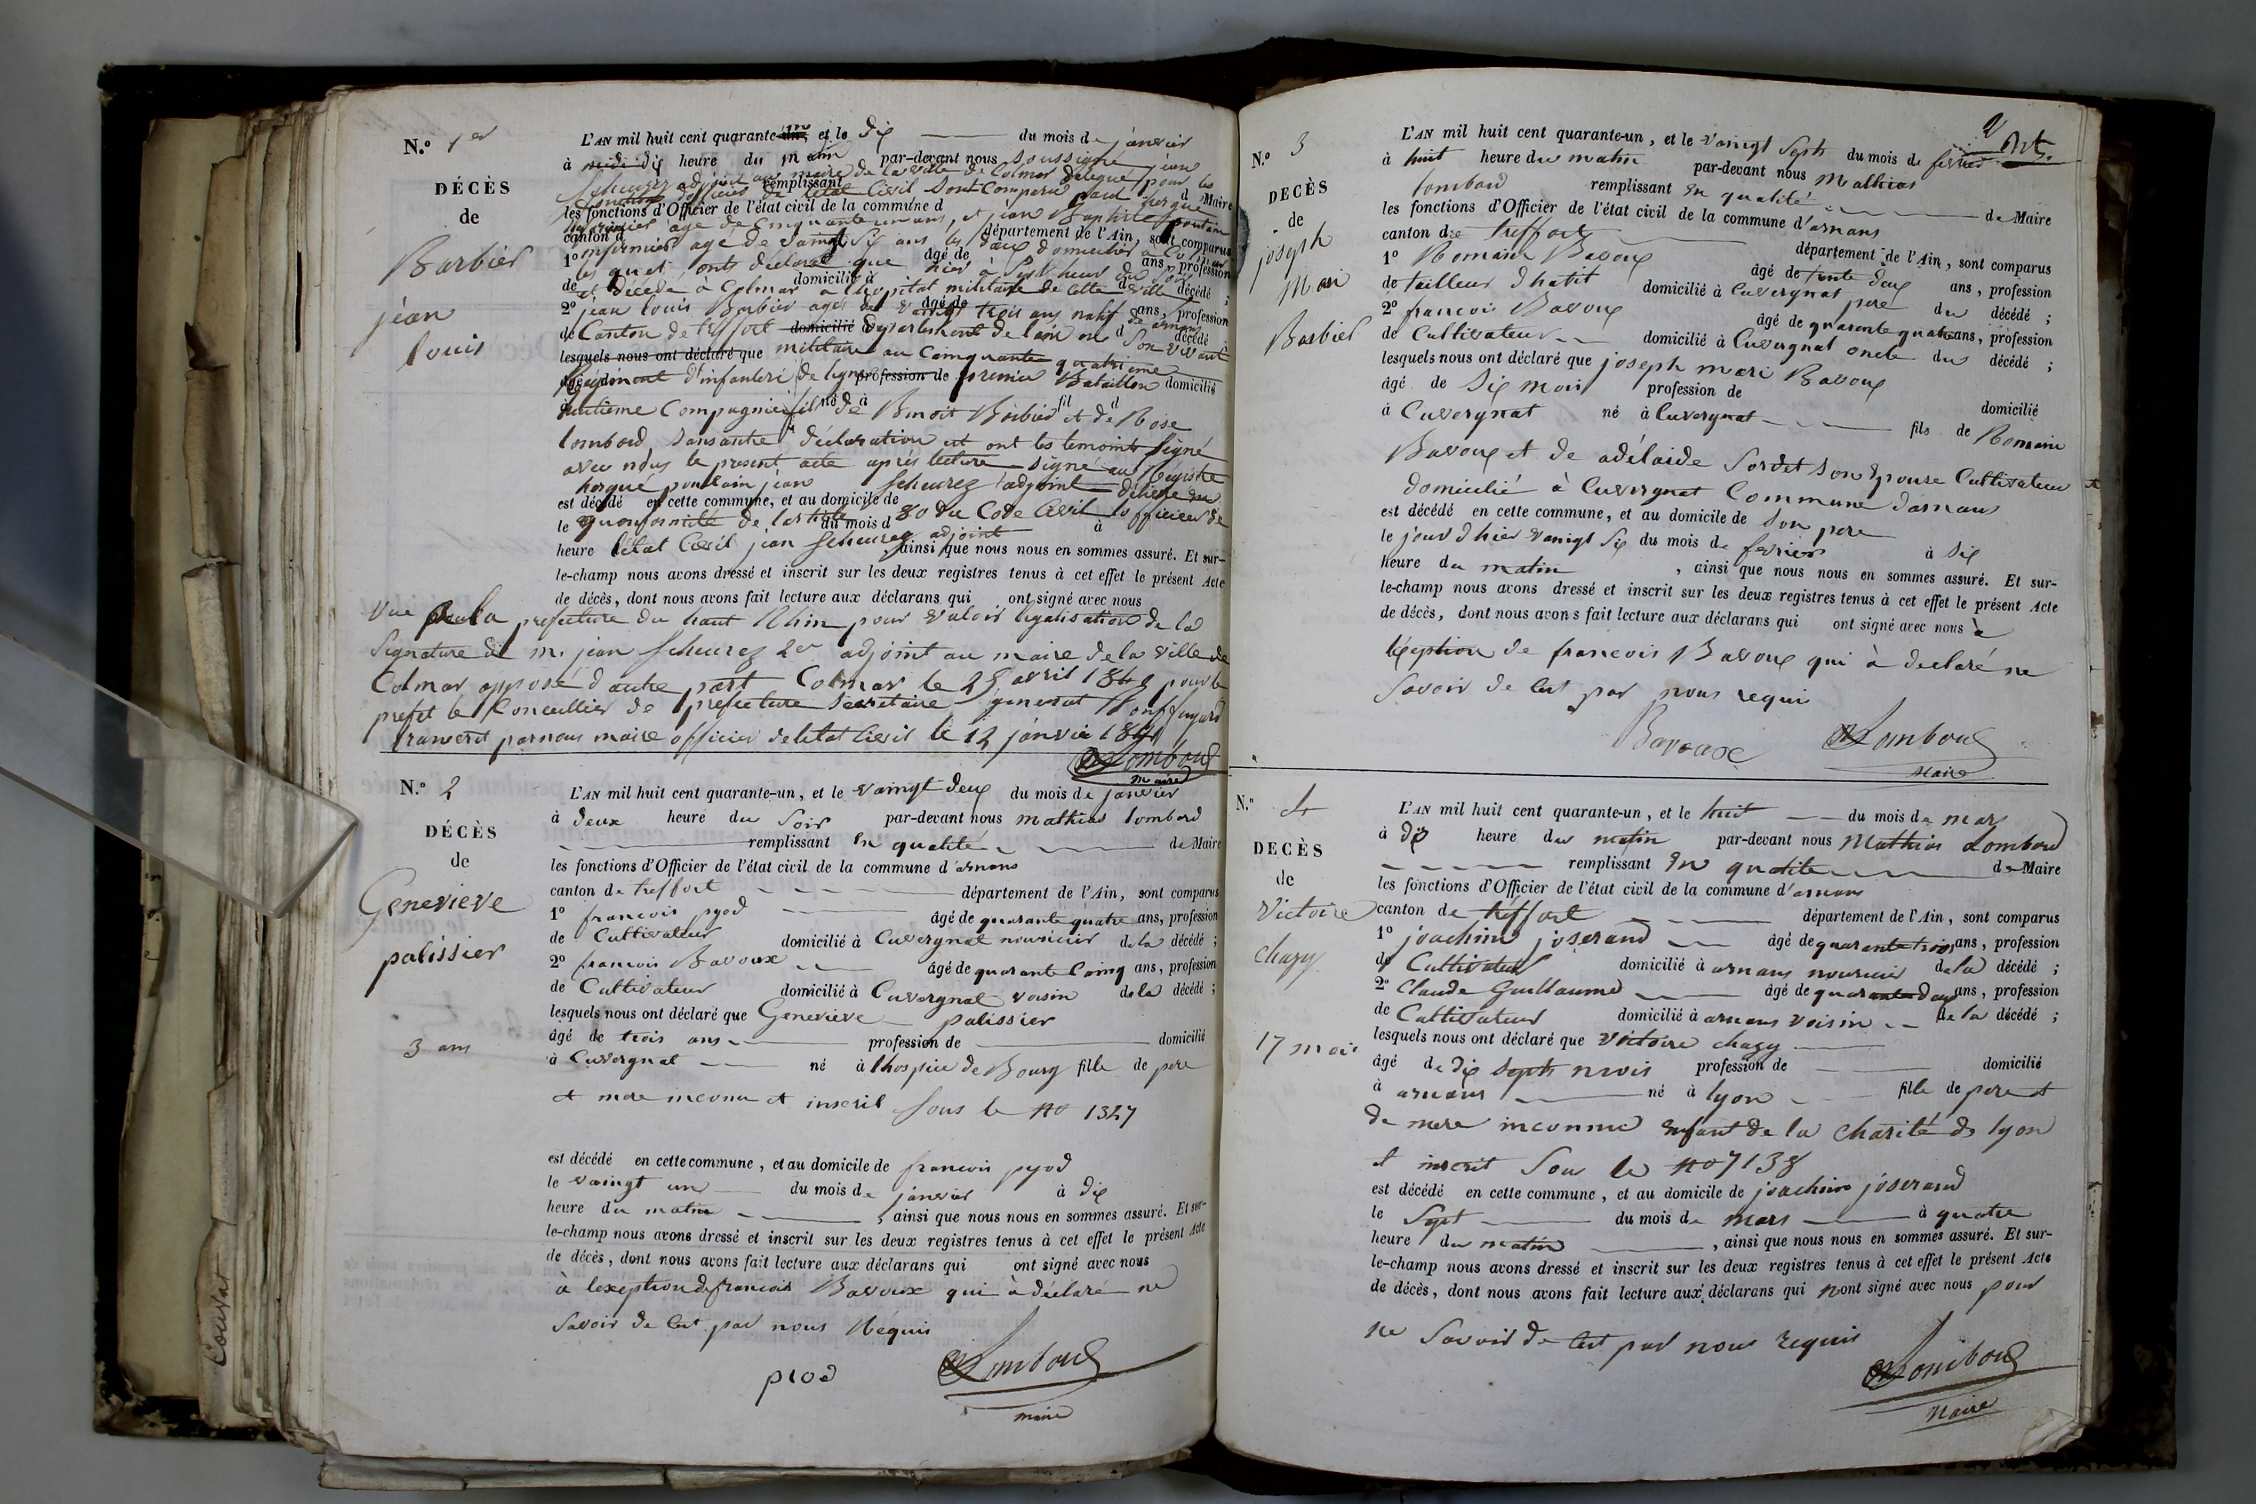 N.° 1er
DÉCÈS
de
Barbier
jéan
louis
L'AN mil huit cent quarante-un, et le dix du mois de janvier
à midi dix heure du matin par-devant nous soussigné jéan
Scheurez adjoint au maire de la ville de Colmar délégué pour les
remplissant de Maire
fonctions d'officier de l'état Civil sont comparu paul
les fonctions d'Officier de l'état civil de la commune d
infirmier agé de Cinquante un ans, et jéan Baptiste poulain
canton d département de l'Ain, sont comparus
infirmier agé de vaingt Six ans les deux domicilier à Colmar
1° âgé de ans, profession
les quel onts déclaré que hier à Sept heur du
de domicilié à d décédé ;
et décédé à Colmar à l'hopital militaire de cette ville
2° jéan louis Barbier agés de vaingt trois ans natif de arnans
âgé de ans, profession
de Canton de treffort domicilié département de l'ain d son vivant
décédé
lesquels nous ont déclaré que militaire au Cinquante quatrieme
Régiment d'infanteri de ligne profession de premier Bataillon domicilié
huitième Compagnie fil né à de Benoit Barbier fil et de d Rose
lombard sans autre déclaration et ont les temoints signé
avec nous le present acte après lecture signé au registre
poulain jéan Scheurez adjoint délivré
est décédé en cette commune, et au domicile de
le quonformité de l'article du mois d 80 du Code Civil à l'officier de
heure l'état Civil jean Scheurez adjoint
ainsi que nous nous en sommes assuré. Et sur-
le-champ nous avons dressé et inscrit sur les deux registres tenus à cet effet le présent Acte
de décès, dont nous avons fait lecture aux déclarans qui ont signé avec nous
Vue par la prefecture du haut Rhin pour valoir légalisation de la
Signature de m. jéan Scheurez 2er adjoint au maire de la ville de
Colmar apposé d'autre part Colmar le 25 avril 1840 pour le
prefet le Conceillier de prefecture Secretaire général
transcrit parnous maire officier deletat Civil le 12 janvié 1841
Lombard
maire
N.° 2
DÉCÈS
de
Genevieve
palissier
3 ans
L'AN mil huit cent quarante-un, et le vaingt deux du mois de janvier
à deux heure du Soir par-devant nous mathias lombard
remplissant En qualité de Maire
les fonctions d'Officier de l'état civil de la commune d'arnans
canton de treffort département de l'Ain, sont comparus
1° francois pyod âgé de quarante quatre ans, profession
de Cultivateur domicilié à Cuvergnat nouricier de la décédé ;
2° francois Bavoux âgé de quarante Cinq ans, profession
de Cultivateur domicilié à Cuvergnat voisin de la décédé ;
lesquels nous ont déclaré que Genevieve palissier
âgé de trois ans profession de domicilié
à Cuvergnat né à lhospice de Bourg fille de pere
et mere inconnu et inscrit Sous le no 1327
est décédé en cette commune, et au domicile de francois pyod
le vaingt un du mois de janvier à dix
heure du matin, ainsi que nous nous en sommes assuré. Et sur-
le-champ nous avons dressé et inscrit sur les deux registres tenus à cet effet le présent Acte
de décès, dont nous avons fait lecture aux déclarans qui ont signé avec nous
à lexeption de francois Bavoux qui à déclaré ne
Savoir de Cet par nous Réquis
piod Lombard
maire
2
N.° 3
DECÈS
de
joseph
Mari
Barbier
L'AN mil huit cent quarante-un, et le vaingt Sept du mois de fevrier
à huit heure du matin par-devant nous Mathias
lombard remplissant En qualité de Maire
les fonctions d'Officier de l'état civil de la commune d'arnans
canton de treffort département de l'Ain, sont comparus
1° Romain Bavoux âgé de trente deux ans, profession
de tailleur dhabit domicilié à Cuvergnat pere du décédé ;
2° francois Bavoux âgé de quarante quatre ans, profession
de Cultivateur domicilié à Cuvergnat oncle du décédé ;
lesquels nous ont déclaré que joseph mari Bavoux
âgé de Six mois profession de domicilié
à Cuvergnat né à Cuvergnat fils de Romain
Bavoux et de adélaide Sordet Son Epouse Cultivateur et
domicilié à Cuvergnat Commune d'arnans
est décédé en cette commune, et au domicile de Son pere
le jour d'hier vaingt Six du mois de fevrier à Six
heure du matin, ainsi que nous nous en sommes assuré. Et sur-
le-champ nous avons dressé et inscrit sur les deux registres tenus à cet effet le présent Acte
de décès, dont nous avons fait lecture aux déclarans qui ont signé avec nous à
léxeption de francois Bavoux qui à declaré ne
Savoir de Cet par nous requi
Bavoux Lombard
Maire
N.° 4
DECÈS
de
Victoire
chazy
17 mois
L'AN mil huit cent quarante-un, et le huit du mois de mars
à dix heure du matin par-devant nous Mathias Lombard
remplissant En qualité de Maire
les fonctions d'Officier de l'état civil de la commune d'arnans
canton de treffort département de l'Ain, sont comparus
1° joachim joserand âgé de quarante trois ans, profession
de Cultivateur domicilié à arnans nouricier de la décédé ;
2° Claude Guillaume âgé de quarante deux ans, profession
de Cultivateur domicilié à arnans voisin de la décédé ;
lesquels nous ont déclaré que Victoire chazy
âgé de dix Sept mois profession de domicilié
à arnans né à lyon fille de pere et
de mere inconnu Enfant de la Charité de lyon
et inscrit Sou le no 7138
est décédé en cette commune, et au domicile de joachim joserand
le Sept du mois de mars à quatre
heure du matin, ainsi que nous nous en sommes assuré. Et sur-
le-champ nous avons dressé et inscrit sur les deux registres tenus à cet effet le présent Acte
de décès, dont nous avons fait lecture aux déclarans qui nont signé avec nous pour
ne Savoir de Cet par nous requis
Lombard
Maire